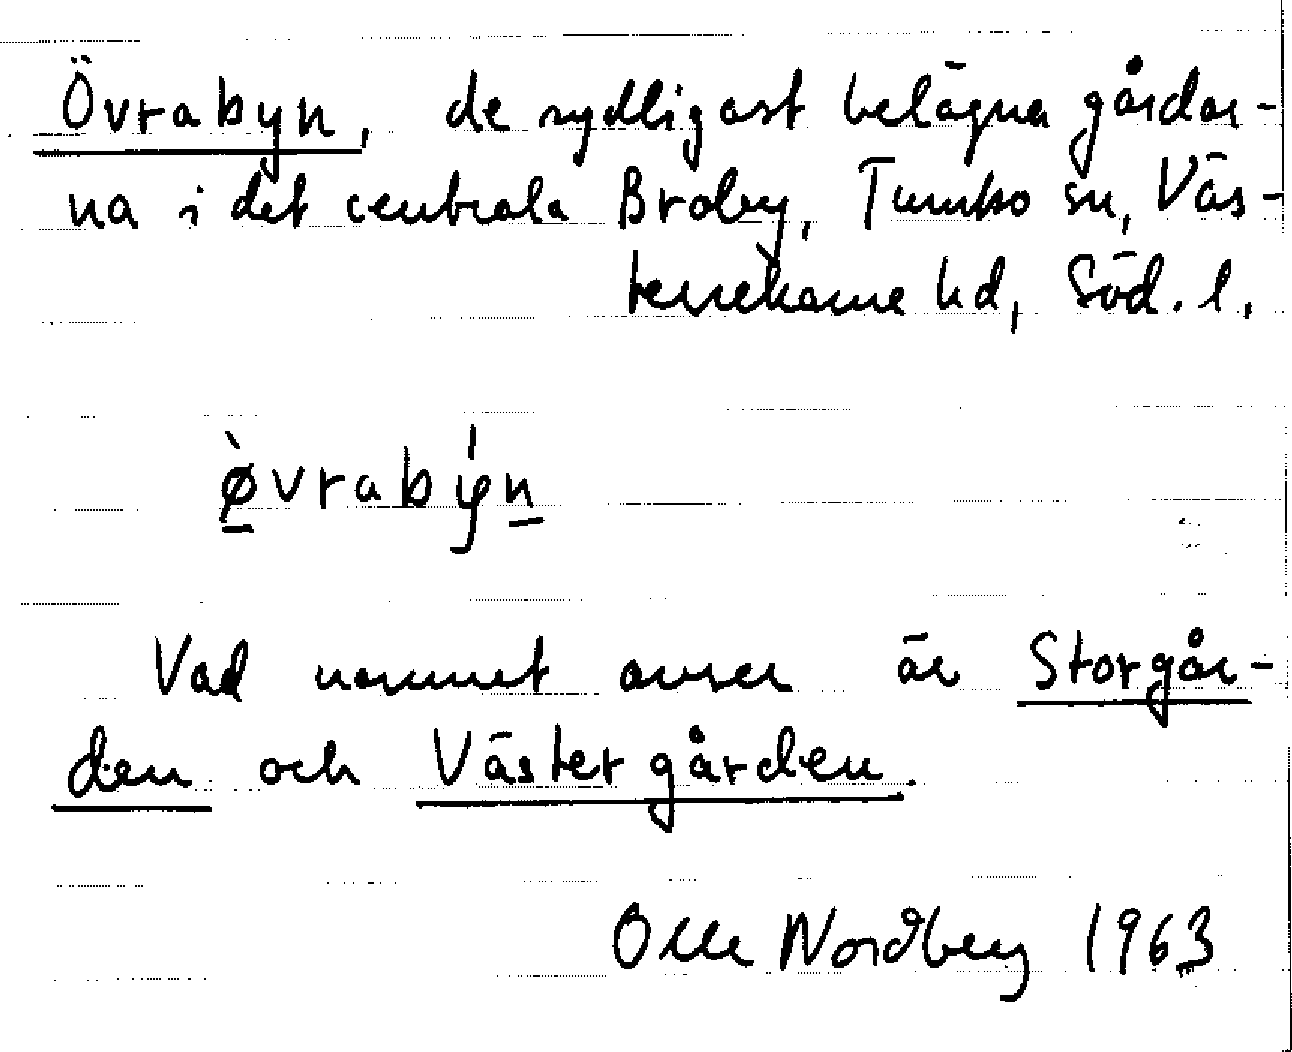 Övrabyn, de sydligast belägna gårdar-
na i det centrala Broby, Tumbo sn, Väs-
terrekarne hd, Söd. l.
ø̀vrabýn
Vad namnet avser är Storgår-
den och Västergården.
Olle Nordberg 1963